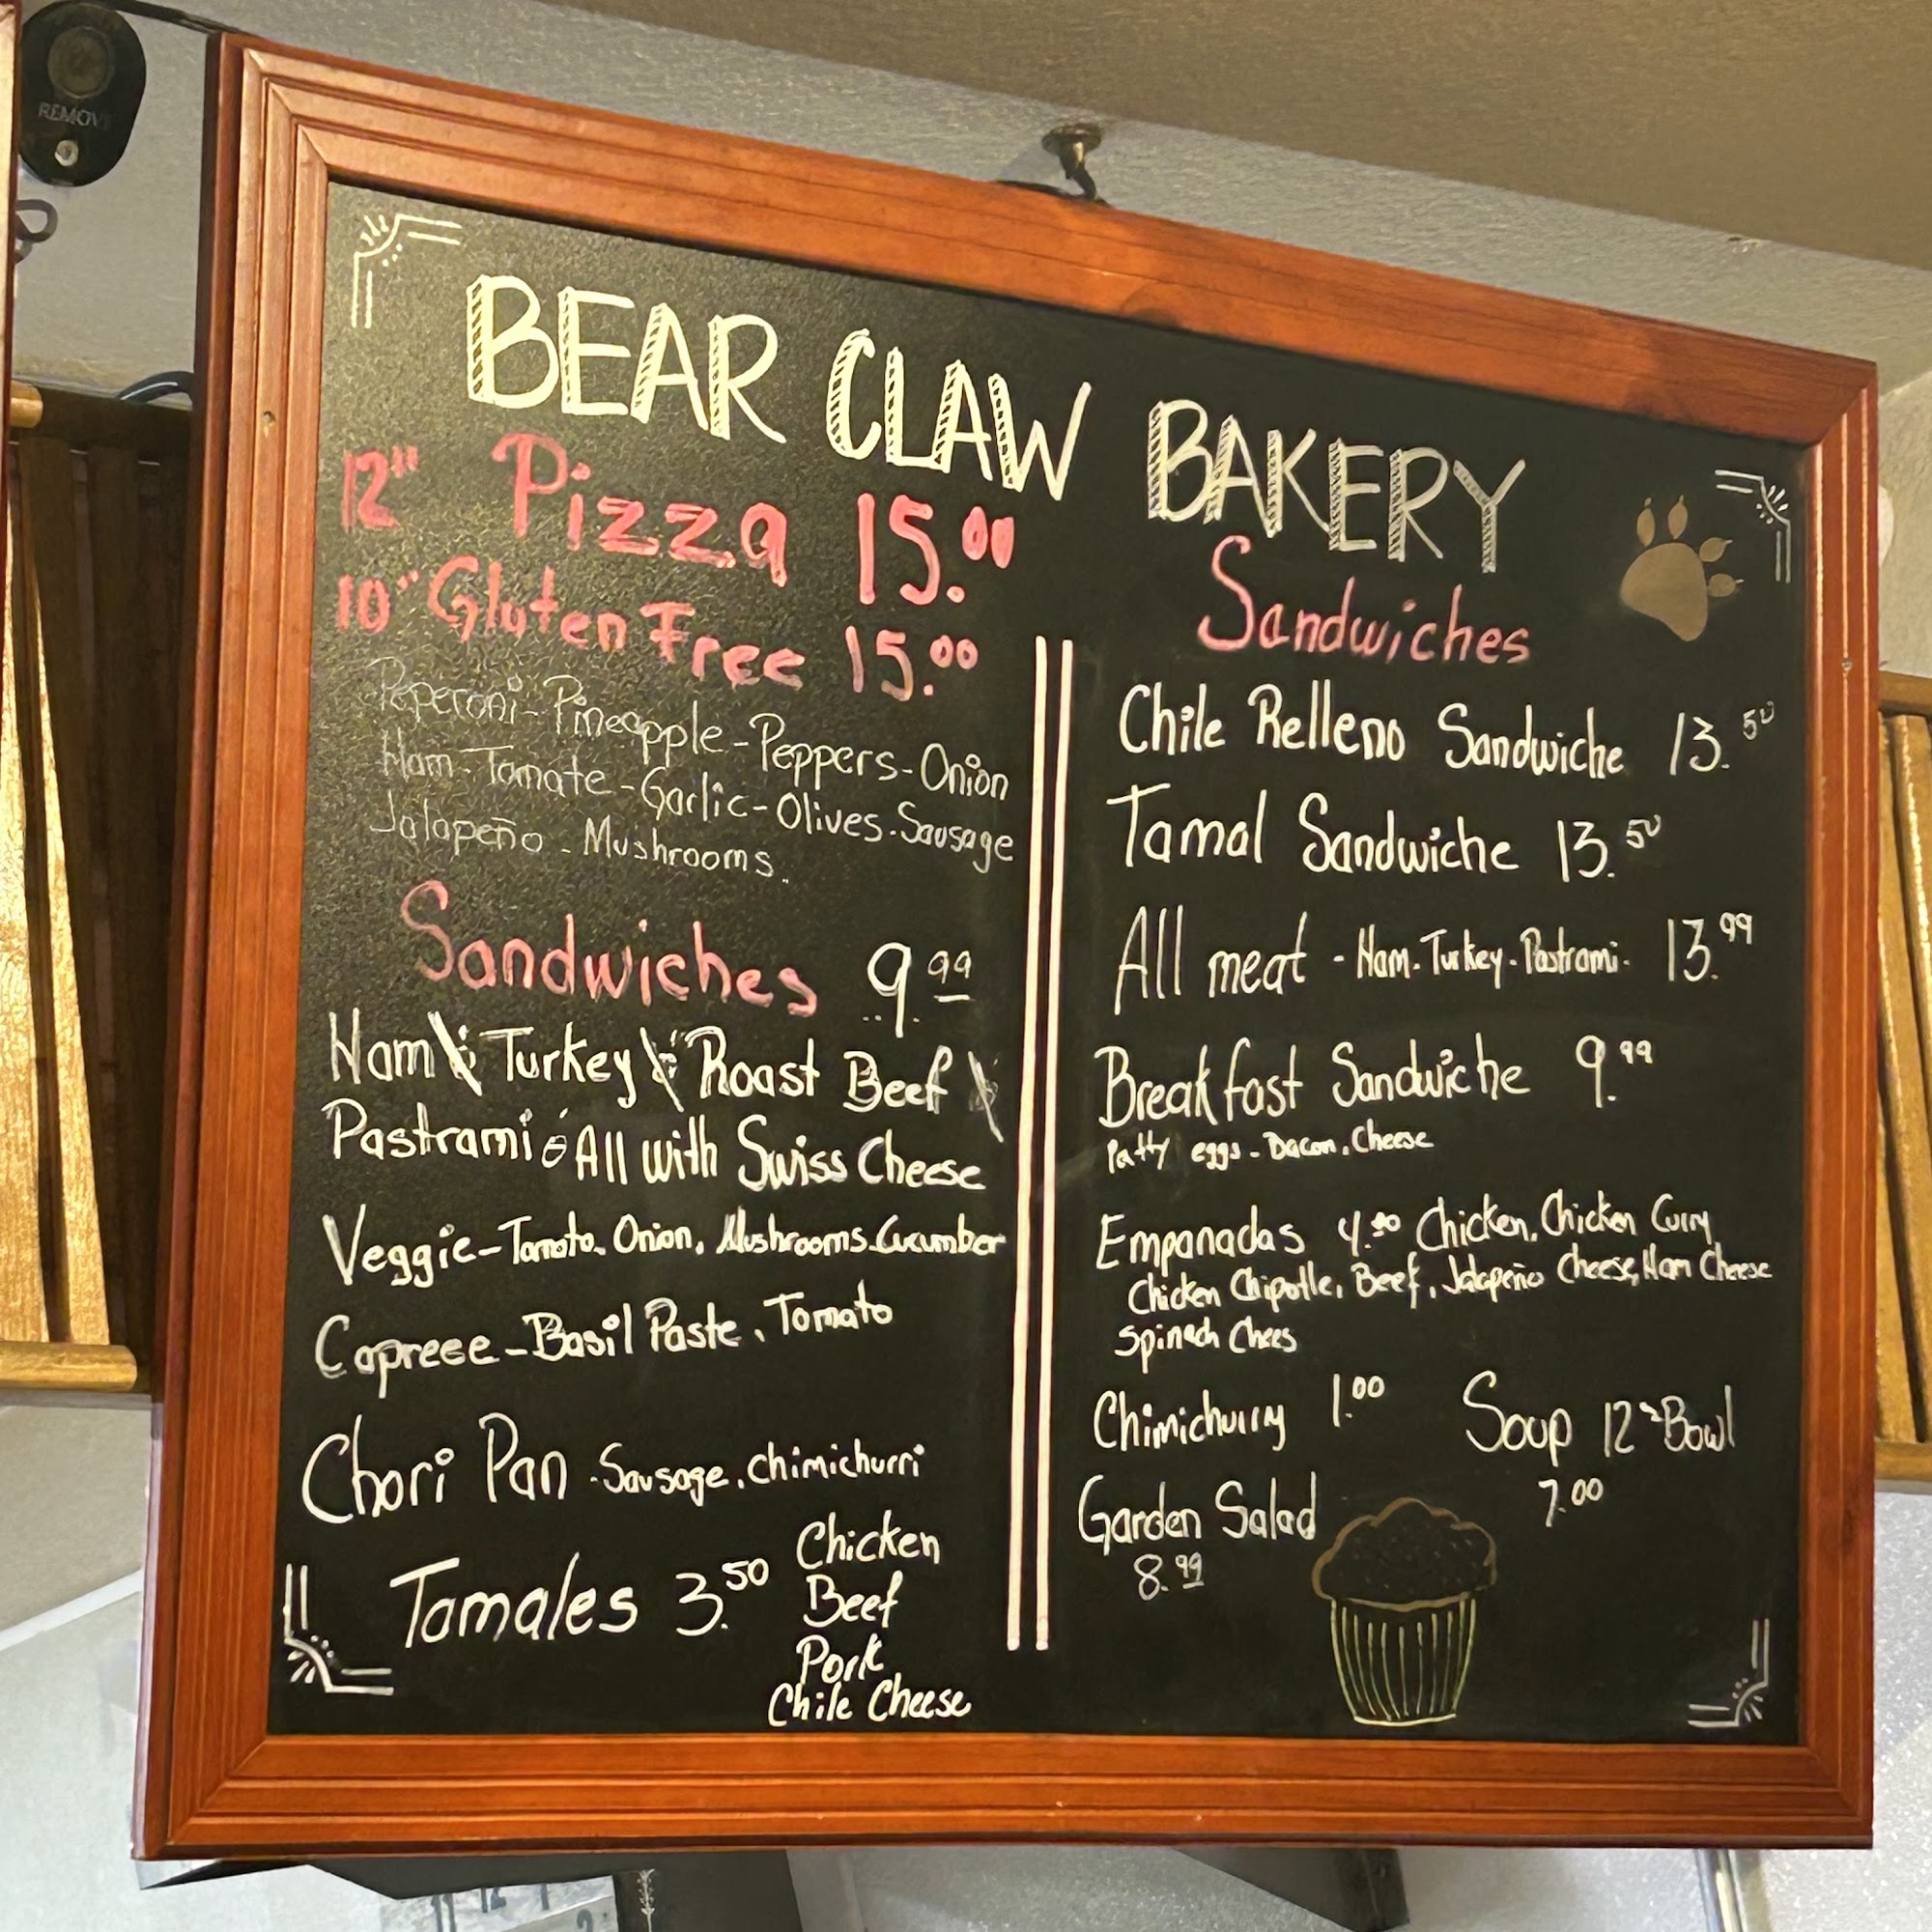 REMOVE
BEAR CLAW BAKERY
12" Pizza 15.00
10" Gluten Free 15.00
Peperoni-Pineapple-Peppers-Onion
Ham-Tomate-Garlic-Olives.Sausage
Jalapeño-Mushrooms.
Sandwiches 9.99
Ham Turkey Roast Beef
Pastrami All with Swiss Cheese
Veggie-Tomato. Onion, Mushrooms.Cucumber
Caprese-Basil Paste, Tomato
Chori Pan -Sausage, Chimichurri
Tamales 3.50 Chicken
Beef
Pork
Chile Cheese
Sandwiches
Chile Relleno Sandwiche 13.50
Tamal Sandwiche 13.50
All meat - Ham-Turkey-Pastrami- 13.99
Breakfast Sandwiche 9.99
Patty eggs-Bacon, Cheese
Empanadas 4.50 Chicken, Chicken Curry
Chicken Chipotle, Beef, Jalapeño Cheese, Ham Cheese
Spinach Chees
Chimichurry 1.00
Soup 12" Bowl
7.00
Garden Salad
8.99